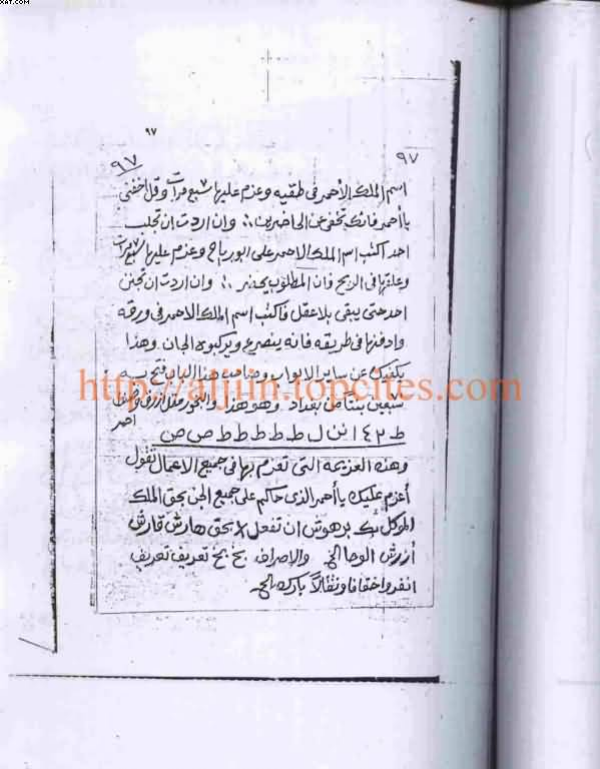 XAT.COM
٩٧
٩٧
٩٧
اسم الملك الأحمر فى طقيه وعزم عليها سبع مرات وقل اخفنى
يا أحمر فانك تخفى عن الحاضرين ؛ وان اردت ان تجلب
احد اكتب اسم الملك الاحمر على ابو رياح وعزم عليها سبع مرات
وعلقها فى الريح فان المطلوب يحضر ؛ وان اردت ان تجنن
احد حتى يبقى بلا عقل فاكتب اسم الملك الاحمر فى ورقه
وادفنها فى طريقه فانه ينصرع ويركبوه الجان وهذا
يكفيك عن ساير الابواب هذا الباب فتح به
سبعين بيتا من بغداد وهو هذا والبخور مقل ازرق
احمر
http://aljiin.topcites.com
وهذه العزيمه التى تعزم بها فى جميع الاعمال تقول
أعزم عليك يا أحمر الذى حاكم على جميع الجن بحق الملك
الموكل بك برهوش ان تفعل لا بحق هارش قارش
أزرش الوحا الخ والإصراف بخ بخ تعريف تعريف
انفروا خفافا وثقالاً بارك الخ